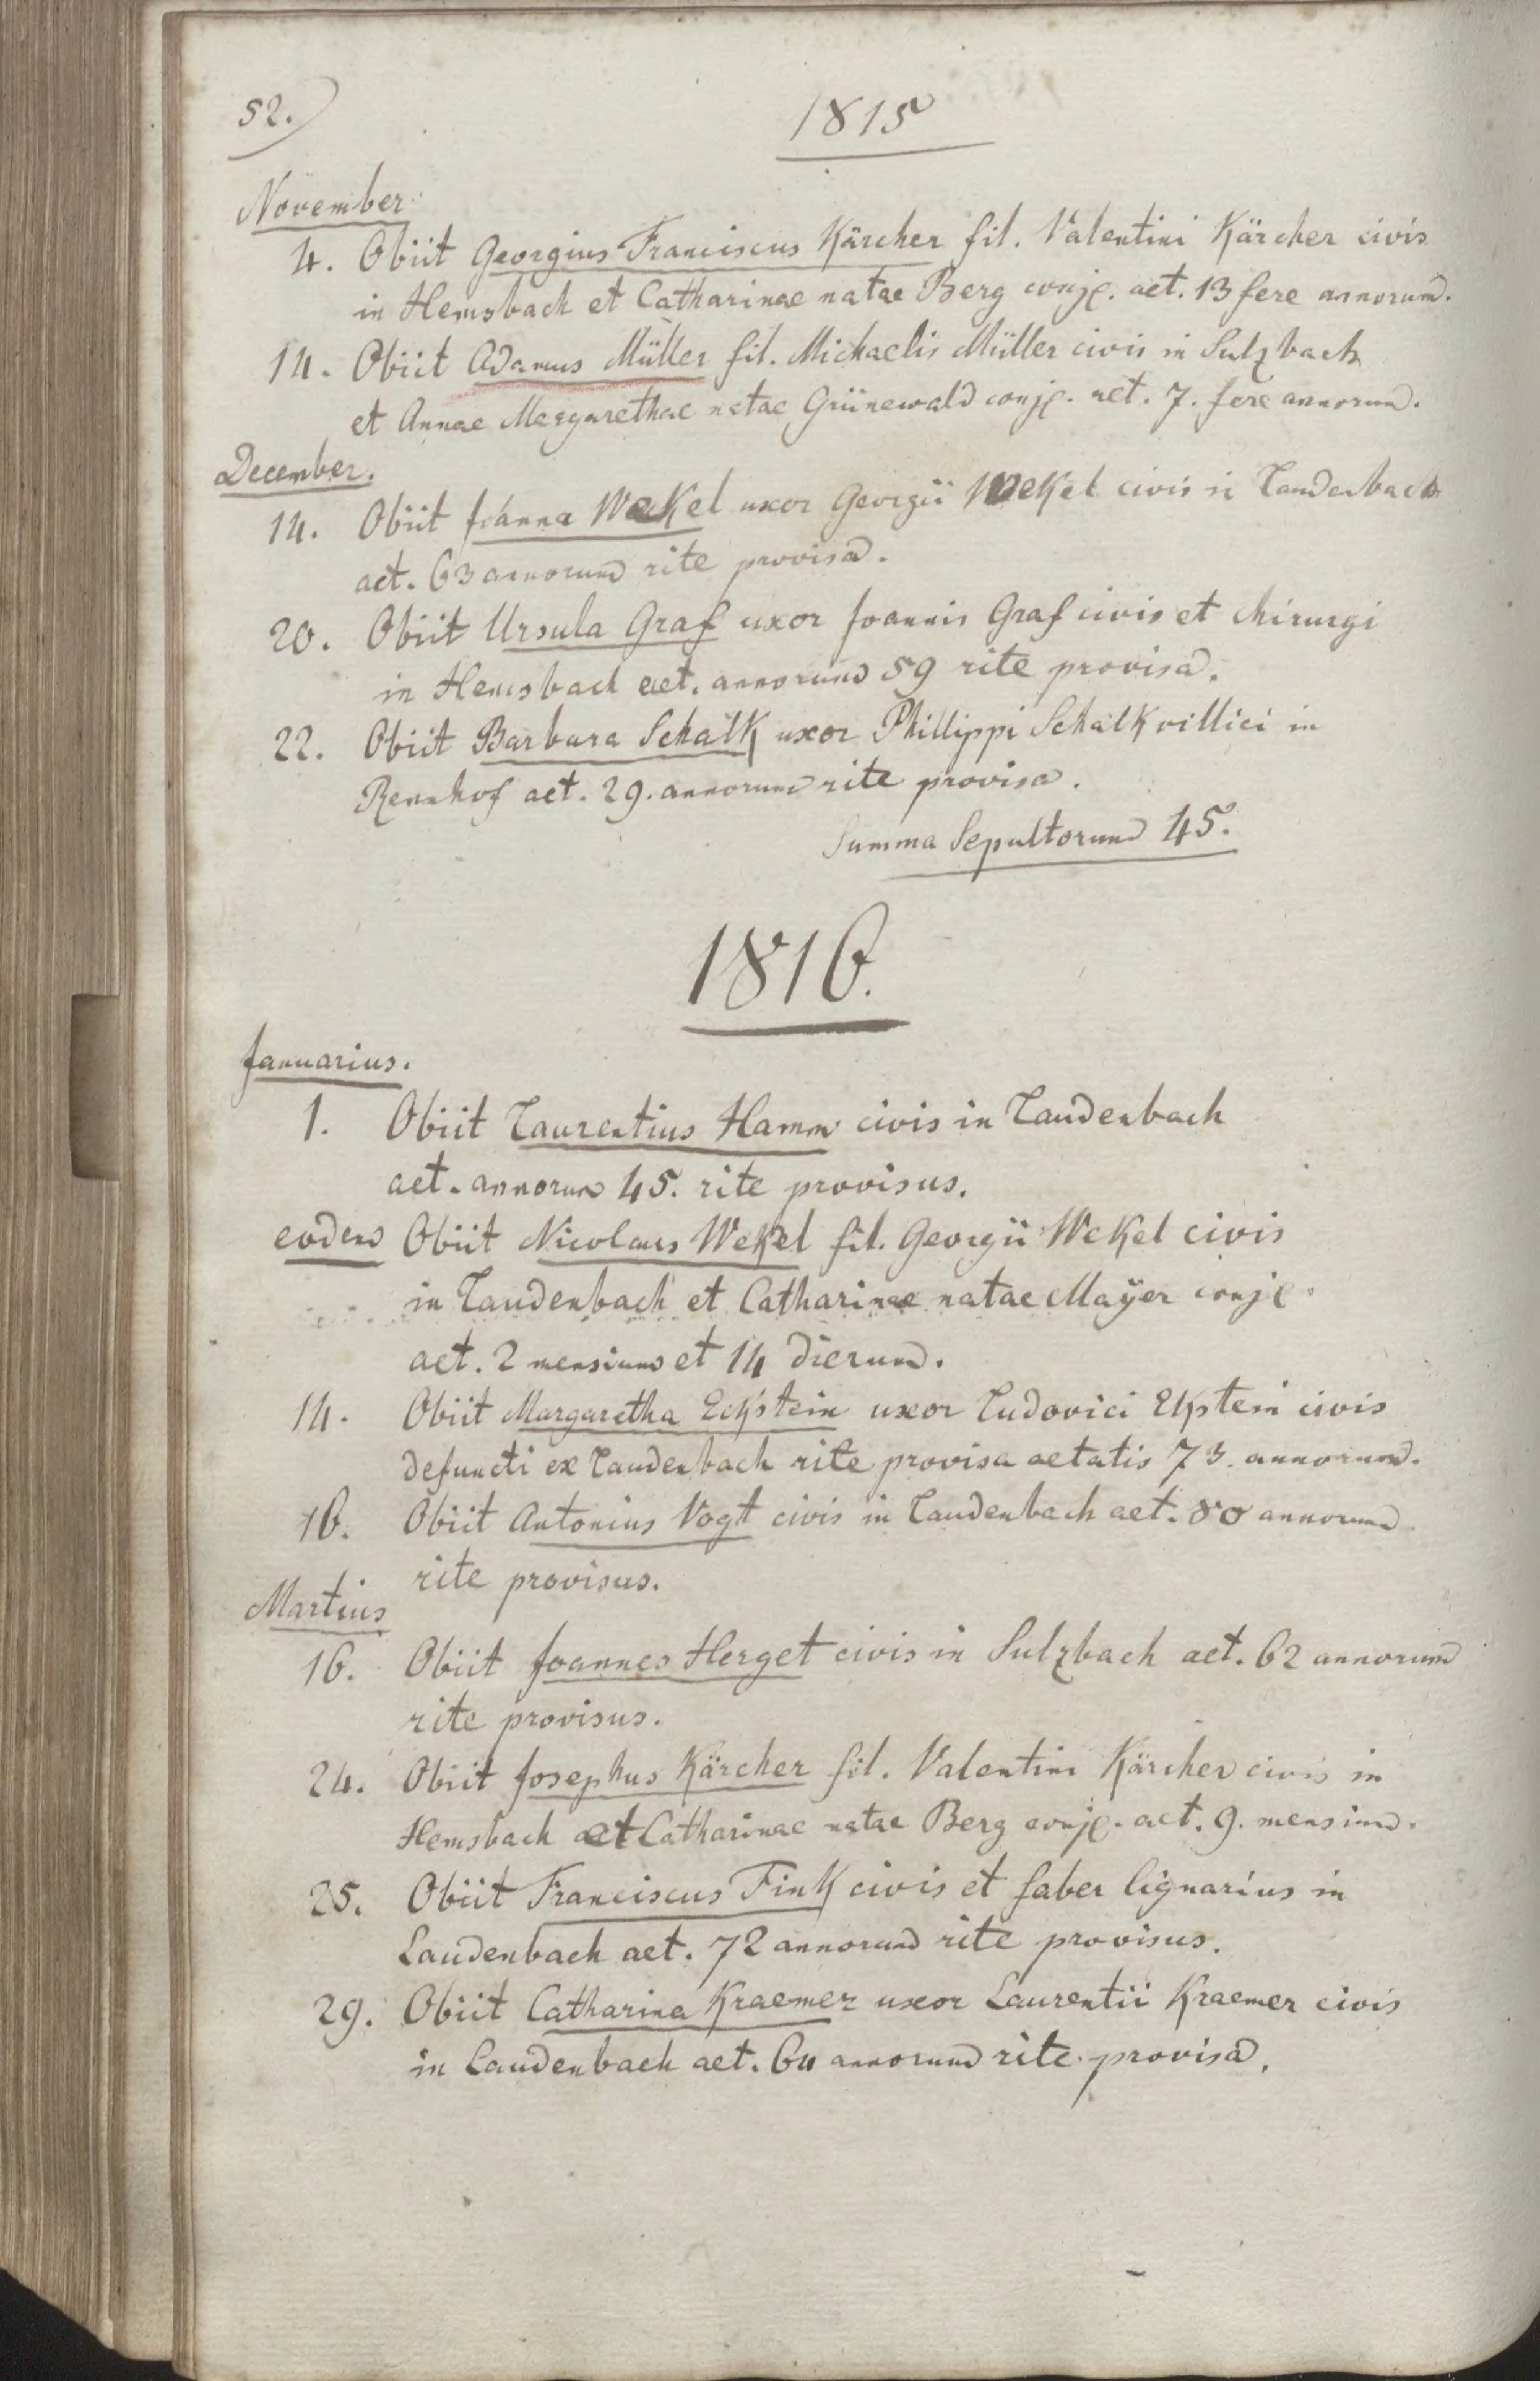 52.
1815
November
4. Obiit Georgius Franciscus Kärcher fil. Valentini Kärcher civis
in Hemsbach et Catharinae natae Berg conj. aet. 13 fere annorum.
14. Obiit Adamus Müller fil. Michaelis Müller civis in Sulzbach
et Annae Margarethae natae Grünewald conj. aet. 7. fere annorum.
December.
14. Obiit Joanna Weckel uxor Georgii Wekel civis in Laudenbach
aet. 63 annorum rite provisa.
20. Obiit Ursula Graf uxor Joannis Graf civis et chirurgi
in Hemsbach aet. annorum 59 rite provisa.
22. Obiit Barbara Schalk uxor Phillippi Schalk villici in
Rennhof aet. 29. annorum rite provisa.
Summa Sepultorum 45.
1816.
Januarius.
1. Obiit Laurentius Hamm civis in Laudenbach
aet. annorum 45. rite provisus.
eodem Obiit Nicolaus Wekel fil. Georgii Wekel civis
in Laudenbach et Catharinae natae Maÿer conj.
aet. 2 mensium et 14 dierum.
14. Obiit Margaretha Eckstein uxor Ludovici Ekstein civis
defuncti ex Laudenbach rite provisa aetatis 73. annorum.
16. Obiit Antonius Vogt civis in Laudenbach aet. 80 annorum
rite provisus.
Martius
16. Obiit Joannes Herget civis in Sulzbach aet. 62 annorum
rite provisus.
24. Obiit Josephus Kärcher fil. Valentini Kärcher civis in
Hemsbach et Catharinae natae Berg conj. aet. 9. mensium.
25. Obiit Franciscus Fink civis et faber lignarius in
Laudenbach aet. 72 annorum rite provisus.
29. Obiit Catharina Kraemer uxor Laurentii Kraemer civis
in Laudenbach aet. 64 annorum rite provisa.